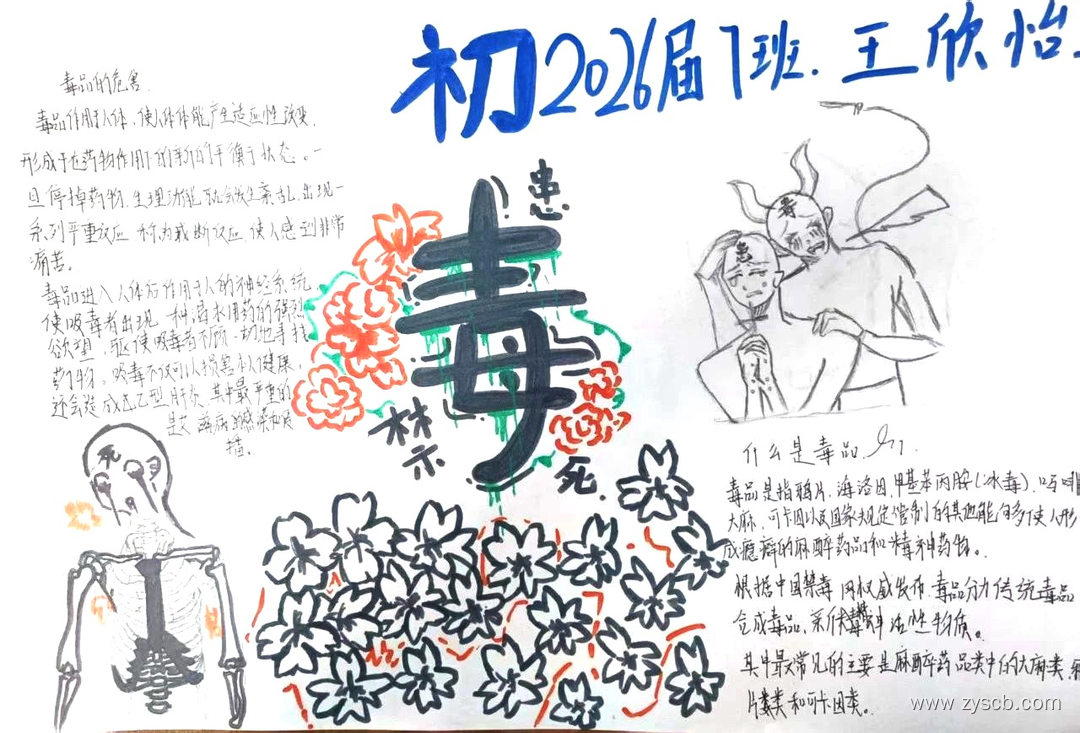 初2026届7班.王欣怡.
毒品的危害.
毒品作用于人体,使人体体能产生适应性改变,
形成于在药物作用下的新的平衡于状态。一
旦停掉药物,生理功能就会发生紊乱,出现一
系列严重反应,称为戒断反应,使人感到非常
痛苦。
毒品进入人体后作用于人的神经系统,
使吸毒者出现一种渴求用药的强烈
欲望,驱使吸毒者不顾一切地寻找
药物。吸毒不仅可以损害人健康,
还会造成乙型肝炎,其中最严重的
是 的感染和传
播。
患
毒
禁
死
死
毒
患
什么是毒品
毒品是指鸦片,海洛因,甲基苯丙胺(冰毒),吗啡
大麻,可卡因以及国家规定管制的其他能够使人形
成瘾癖的麻醉药品和精神药物。
根据中国禁毒网权威发布,毒品分为传统毒品
合成毒品,新 活性物质。
其中最常见的主要是麻醉药品类中的大麻类
片类类和可卡因类。
www.zyscb.com